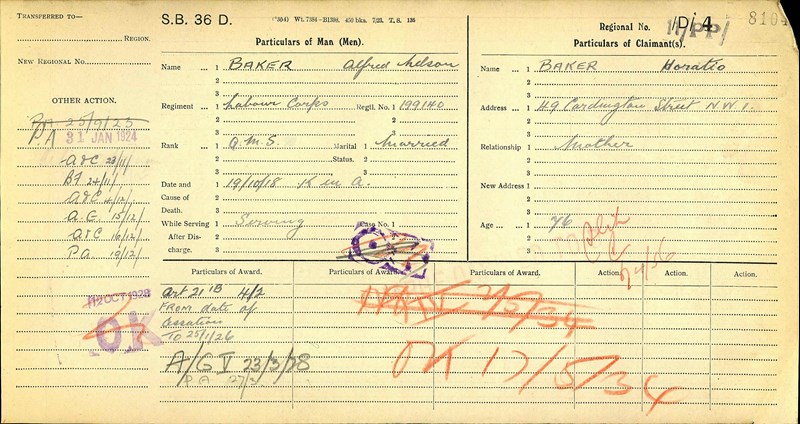 TRANSFERRED TO—
REGION.
NEW REGIONAL No.
OTHER ACTION.
PA 25/9/23
PA 31 JAN 1924
A&C 23/11/
BJ 24/11/
A&C 4/12/
A.E. 15/12/
A&C 16/12/
P.A. 19/12/
12 OCT 1928
OK
S.B. 36 D.
Wt. 7384—B1398. 450 bks. 7/23. T. S. 136
Particulars of Man (Men).
Name ... 1 BAKER Alfred Nelson
2
3
Regiment ... 1 Labour Corps Regtl. No. 1 199140
2 2
3 3
Rank ... 1 Q.M.S. Marital 1 Married
2 Status. 2
3 3
Date and 1 19/10/18 K in A.
Cause of 2
Death. 3
While Serving 1 Serving Case No. 1
After Dis- 2
charge. 3
Regional No. 1/D/4
/PP/
8104
Particulars of Claimant(s).
Name ... 1 BAKER Horatio
2
3
Address ... 1 49 Cardington Street N.W.1.
2
3
Relationship 1 Mother
2
3
New Address 1
2
3
Age ... 1 76
2
3
24/56
Particulars of Award. Particulars of Award. Particulars of Award. Action. Action. Action.
Art 21 1B 4/2
FROM date of
cessation
TO 25/1/26
A/G V 23/3/28
P.A. 27/3/
2/5/34
OK 17/5/34